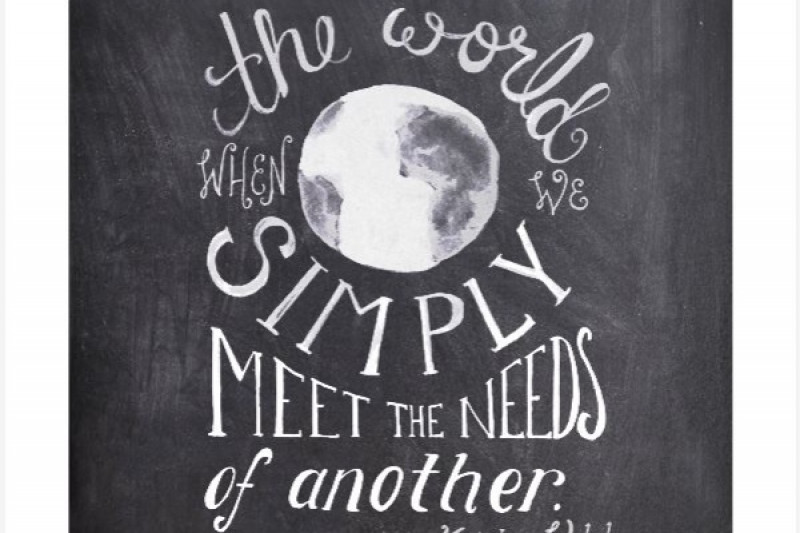 the world
WHEN WE
SIMPLY
MEET THE NEEDS
of another.